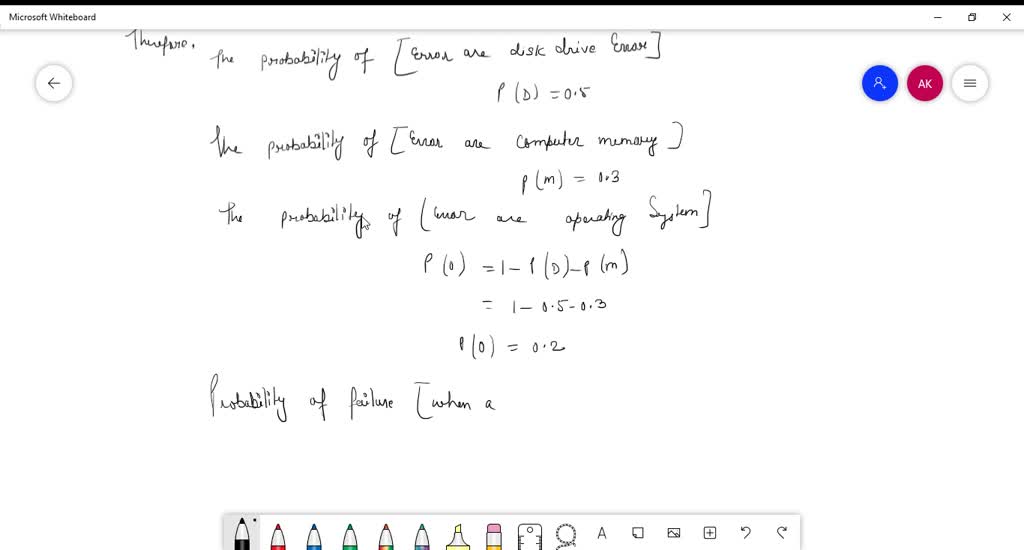 Microsoft Whiteboard
Therefore,
The probability of [Error are disk drive Error]
P(D) = 0.5
AK
The probability of [Error are computer memory]
P(m) = 0.3
The probability of [Error are operating System]
P(0) = 1 - P(D) - P(m)
= 1 - 0.5 - 0.3
P(0) = 0.2
Probability of failure [when a
A